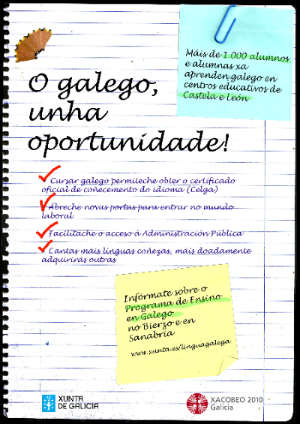 Máis de 1.000 alumnos
e alumnas xa
aprenden galego en
centros educativos de
Castela e León
O galego,
unha
oportunidade!
Cursar galego permíteche obter o certificado
oficial de coñecemento do idioma (Celga)
Ábreche novas portas para entrar no mundo
laboral
Facilítache o acceso á Administración Pública
Cantas mais linguas coñezas, mais doadamente
adquirirás outras
Infórmate sobre o
Programa de Ensino
en Galego
no Bierzo e en
Sanabria
www.xunta.es/linguagalega
XUNTA
DE GALICIA
XACOBEO 2010
Galicia